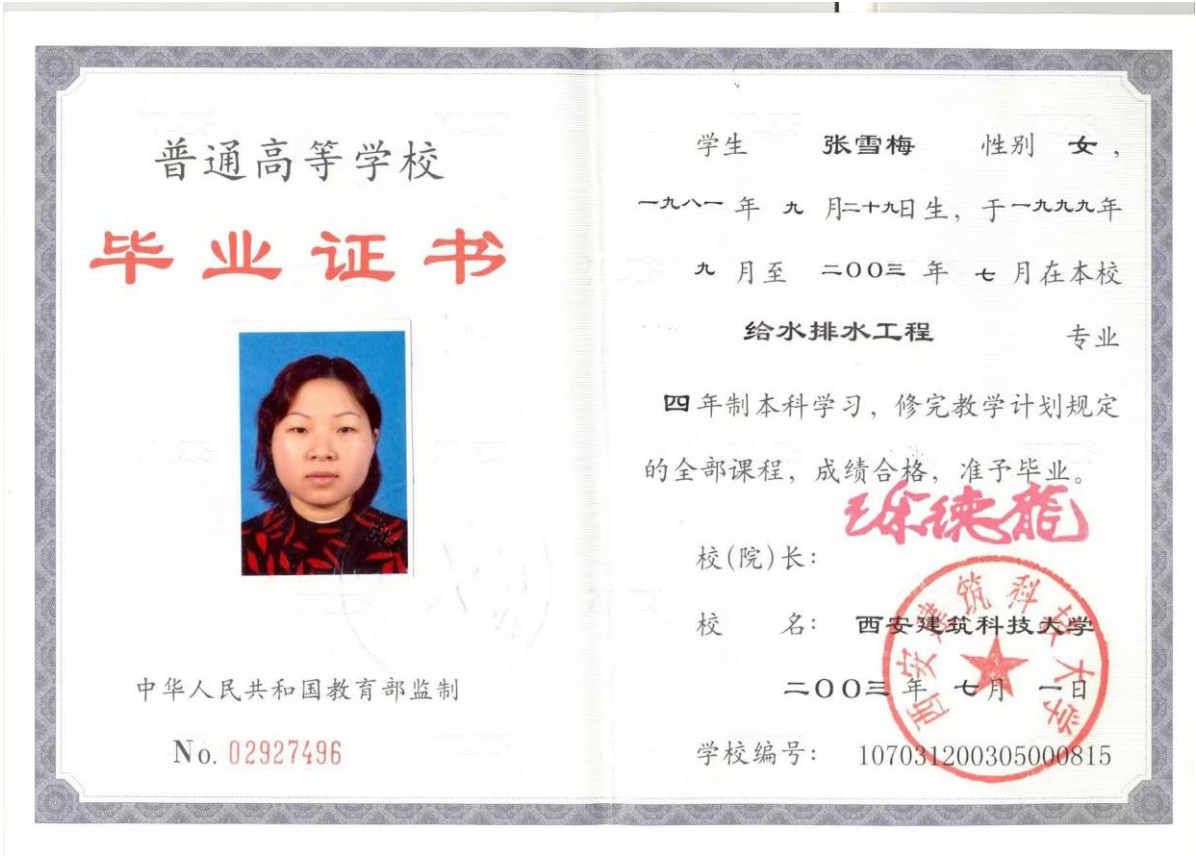 普通高等学校
毕业证书
中华人民共和国教育部监制
No. 02927496
学生 张雪梅 性别 女,
一九八一年 九 月二十九日生, 于一九九九年
九 月至 二〇〇三 年 七 月在本校
给水排水工程 专业
四年制本科学习, 修完教学计划规定
的全部课程, 成绩合格, 准予毕业。
校(院)长:
校 名: 西安建筑科技大学
二〇〇三 年 七月 一日
学校编号: 107031200305000815
西安建筑科技大学